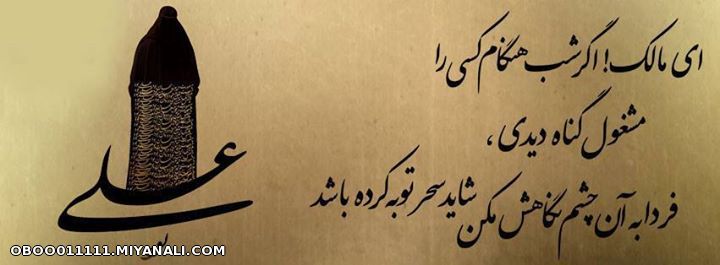 ای مالک! اگر شب هنگام کسی را
مشغول گناه دیدی،
فردا به آن چشم نگاهش مکن شاید سحر توبه کرده باشد
علی
OBOO011111.MIYANALI.COM